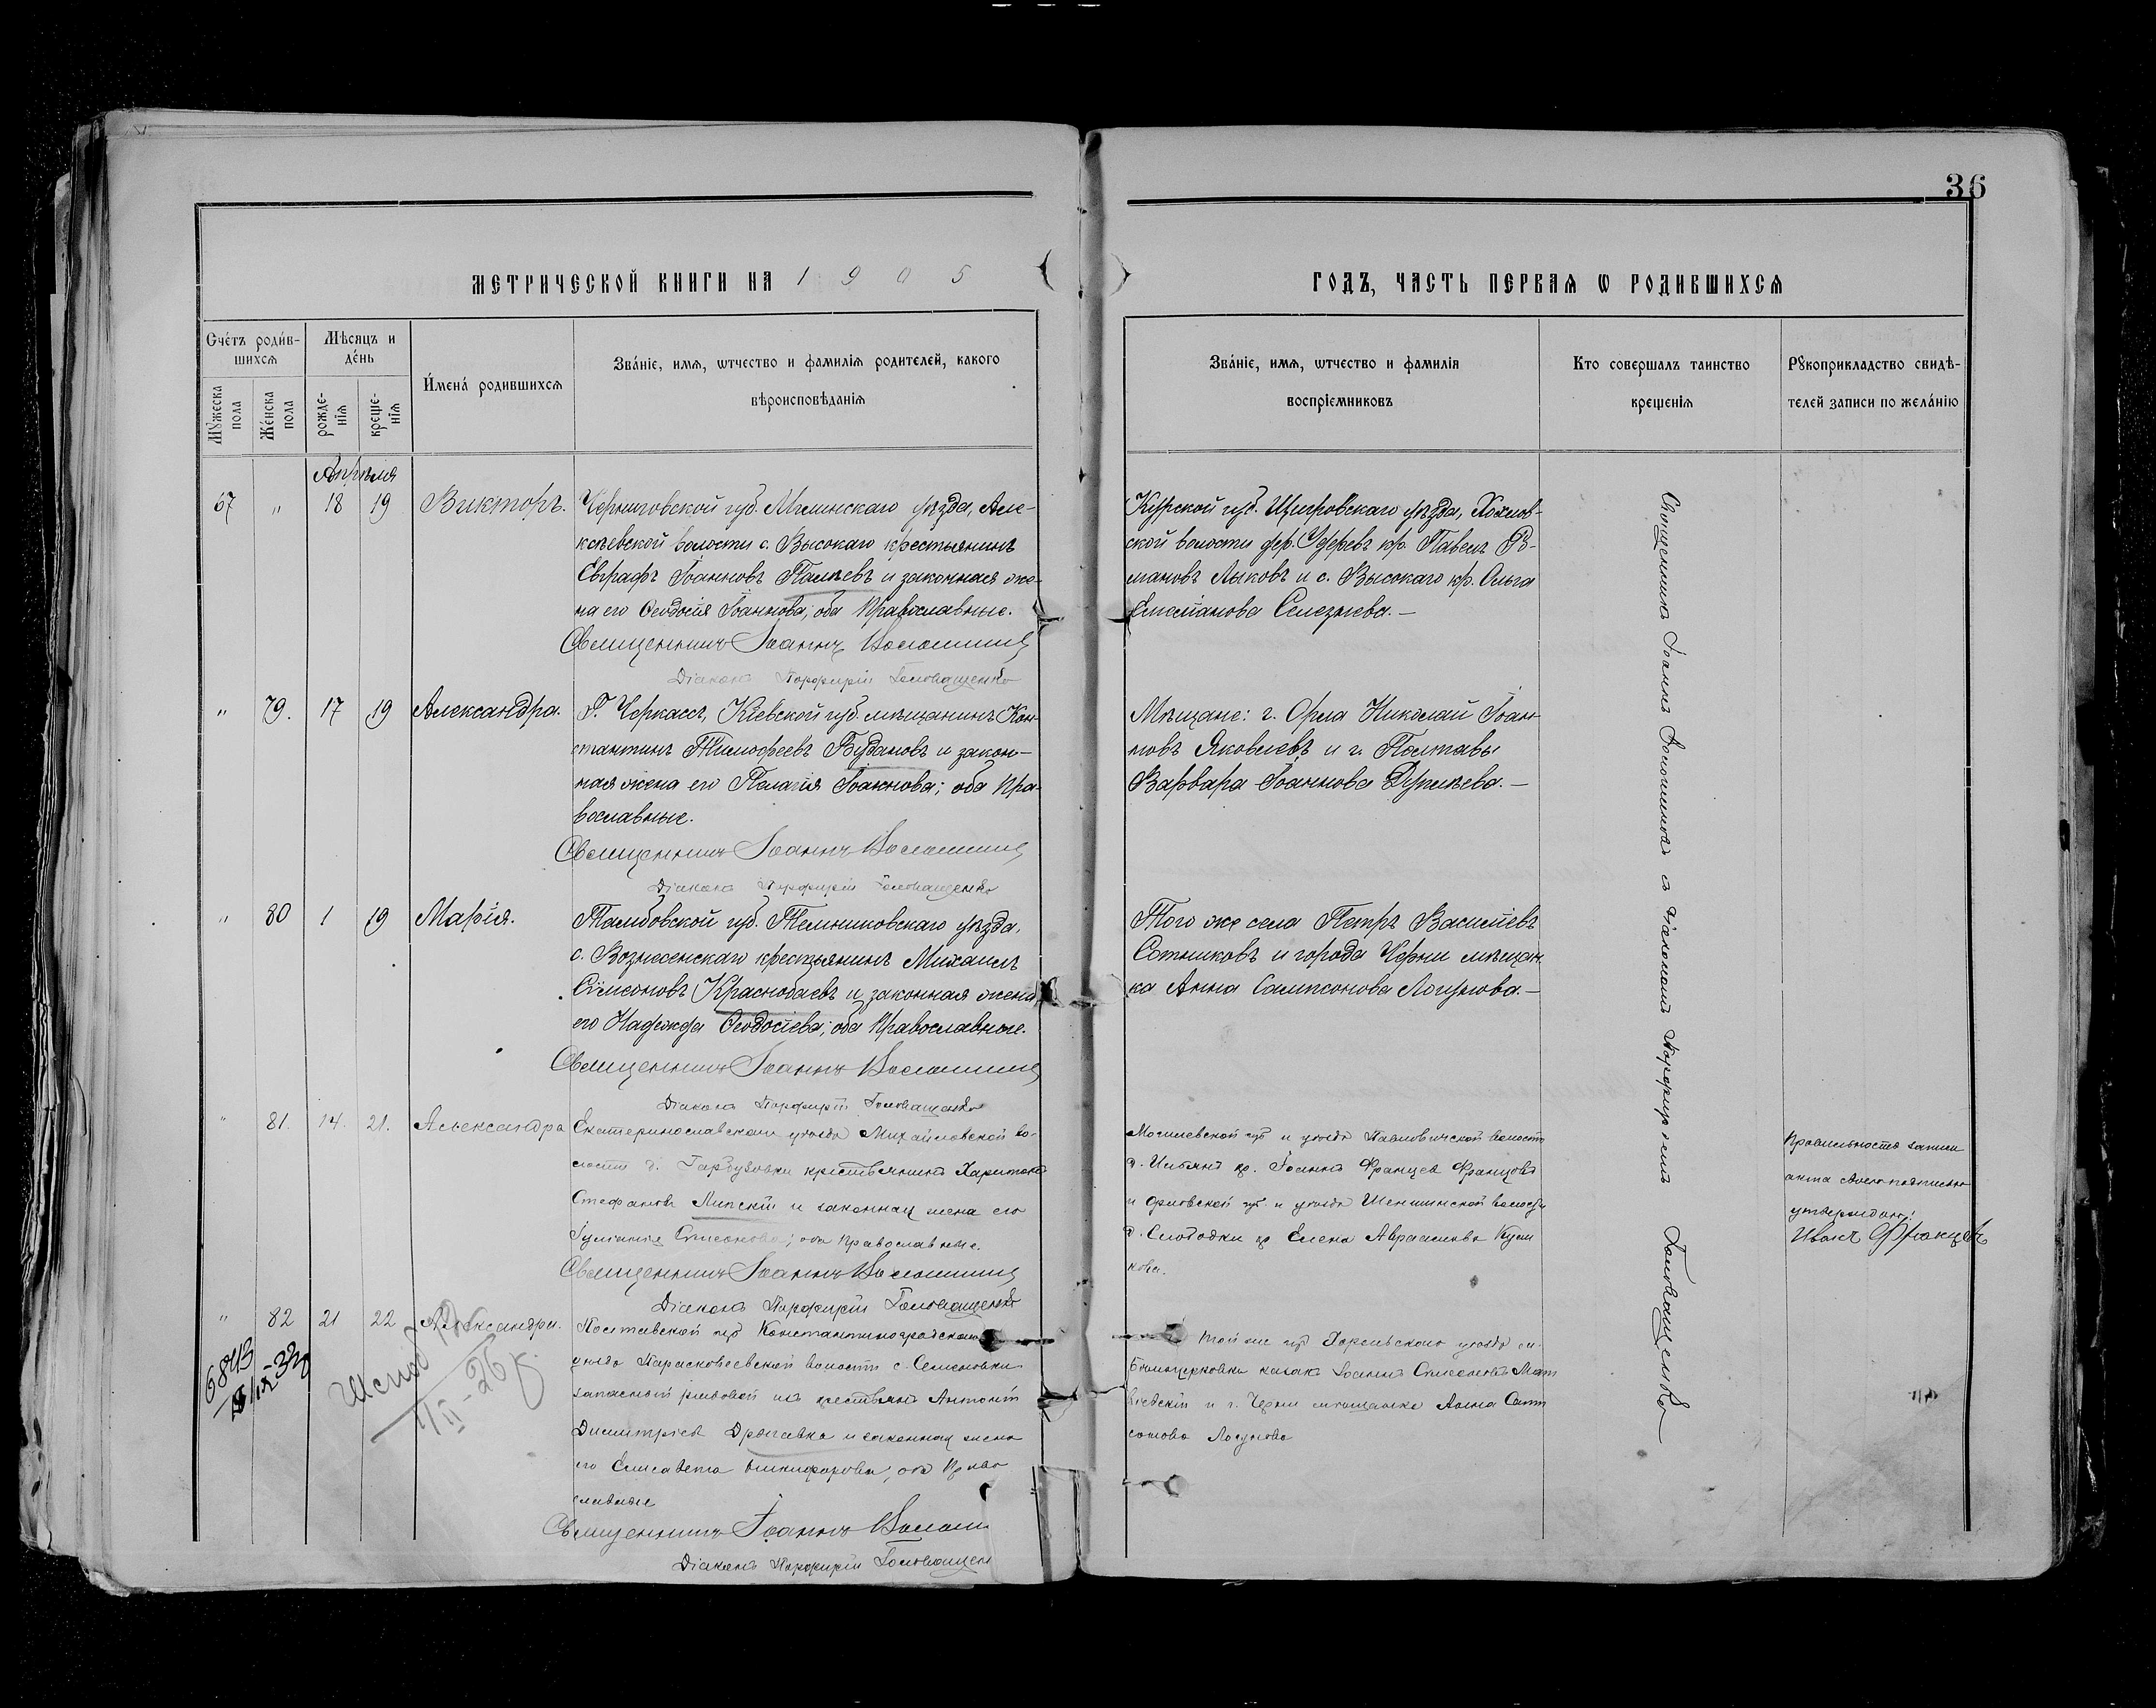 36
МЕТРИЧЕСКОЙ КНИГИ НА 1905
ГОДЪ, ЧАСТЬ ПЕРВАѦ Ѡ РОДИВШИХСѦ
Счéтъ роди́в-
шихсѧ
Мѣ́сяцъ и
дéнь
Мꙋ́жеска
пола
Жéнска
пола
рожде-
нїѧ
креще-
нїѧ
И҆менá родившихсѧ
Звáнїе, имѧ, ѿчество и фамилїѧ родителей, какого
вѣроисповѣданїѧ
Звáнїе, имѧ, ѿчество и фамилїѧ
воспрїемниковъ
Кто совершалъ таинство
крещенїѧ
Рꙋкоприкладство свидѣ-
телей записи по желáнїю
Апрѣля
67 " 18 19 Викторъ.
Черниговской губ. Мглинскаго уѣзда, Але-
ксѣевской волости с. Высокаго крестьянинъ
Евграфъ Іоанновъ Палѣевъ и законная же-
на его Ѳеодосія Іоаннова, оба Православные.
Священникъ Іоаннъ Волошинъ
Діаконъ Порфирій Головащенко
Курской губ. Щигровскаго уѣзда, Хохлов-
ской волости дер. Удеревъ кр. Павелъ Ро-
мановъ Лыковъ и с. Высокаго кр. Ольга
Емельянова Селезнева.—
" 79. 17 19 Александра.
Г. Черкассъ, Кіевской губ. мѣщанинъ Кон-
стантинъ Тимофеевъ Будановъ и закон-
ная жена его Пелагія Іоаннова; оба Пра-
вославные.
Священникъ Іоаннъ Волошинъ
Діаконъ Порфирій Головащенко
Мѣщане: г. Орла Николай Іоан-
новъ Яковлевъ и г. Полтавы
Варвара Іоаннова
" 80 1 19 Марія.
Тамбовской губ. Темниковскаго уѣзда,
с. Вознесенскаго крестьянинъ Михаилъ
Симеоновъ Краснобаевъ и законная жена
его Надежда Ѳеодосіева; оба Православные.
Священникъ Іоаннъ Волошинъ
Діаконъ Порфирій Головащенко
Того же села Петръ Василіевъ
Сотниковъ и города Черни мѣщан-
ка Анна Сампсонова Логунова.—
" 81. 14. 21. Александра
Екатеринославскаго уѣзда Михайловской во-
лости д. Гарбузовки крестьянинъ Харитонъ
Стефановъ Липскій и законная жена его
Іуліанія Симеонова; оба Православные.
Священникъ Іоаннъ Волошинъ
Діаконъ Порфирій Головащенко
Могилевской губ и уѣзда Павловичской волости
д. Ильянъ кр. Іоаннъ Францевъ Францовъ
и Орловской губ. и уѣзда Шеншинской волости
д. Слободки кр Елена Авраамова Кули
кова.
Правильность записи
акта этого подписью
утверждаю:
Иванъ Францевъ
" 82 21 22 Александра.
Полтавской губ Константиноградскаго
уѣзда Парасковеевской волости с. Семеновки
запасный рядовой изъ крестьянъ Антоній
Димитріевъ и законная жена
его Елисавета Никифорова, оба Право
славные
Священникъ Іоаннъ Волоши
Діаконъ Порфирій Головащен
Той же губ Хорольскаго уѣзда м.
Бѣлоцерковки казакъ Іоаннъ Симеоновъ Мат
вієвскій и г. Черни мѣщанка Анна Самп
сонова Логунова
Священникъ Іоаннъ Волошиновъ съ діакономъ Порфиріемъ Головащенко